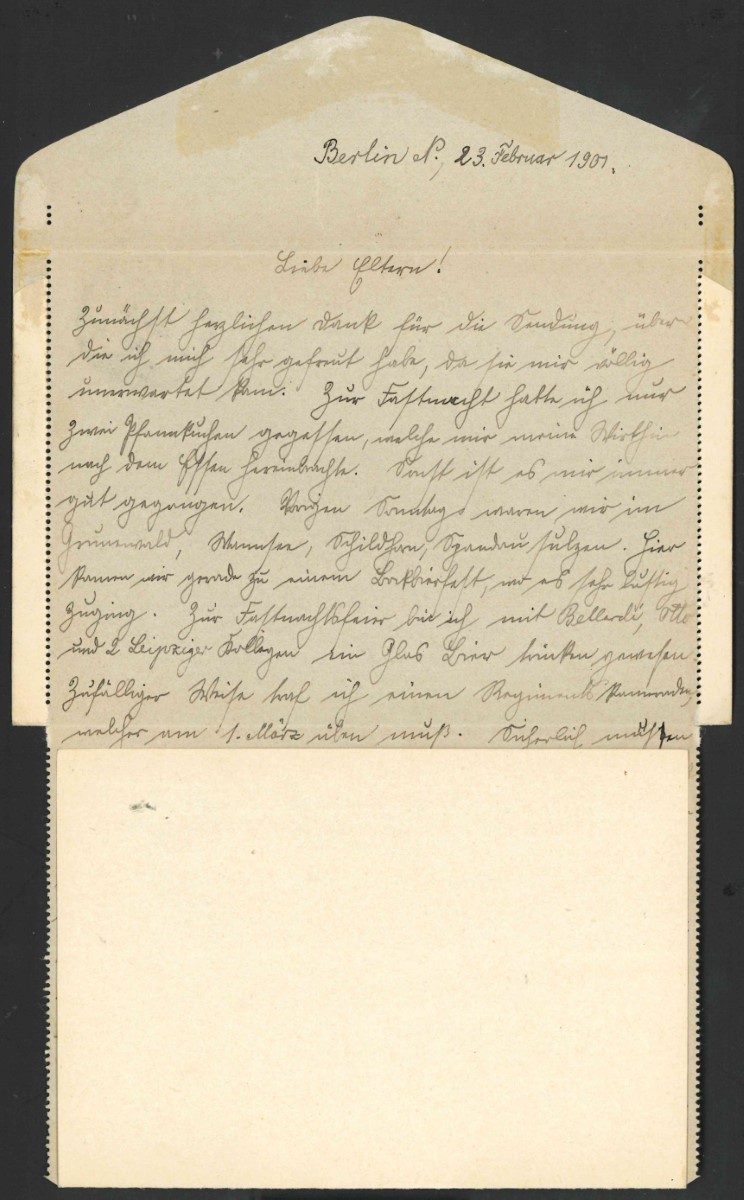 Berlin N., 23. Februar 1901.
Liebe Eltern!
Zunächst herzlichen Dank für die Sendung, über
die ich mich sehr gefreut habe, da sie mir völlig
unerwartet kam. Zur Fastnacht hatte ich nur
zwei Pfannkuchen gegessen, welche mir meine Wirthin
nach dem Essen hereinbrachte. Sonst ist es mir immer
gut gegangen. Vorigen Sonntag waren wir im
Grunewald, Wannsee, Schildhorn, Spandau. Hier
kamen wir gerade zu einem Bockbierfest, wo es sehr lustig
zuging. Zur Fastnachtsfeier bin ich mit Otto
und 2 Leipziger Kollegen ein Glas Bier trinken gewesen
Zufälliger Weise traf ich einen Regimentskameraden,
welcher am 1. März üben muß. Sicherlich müssen